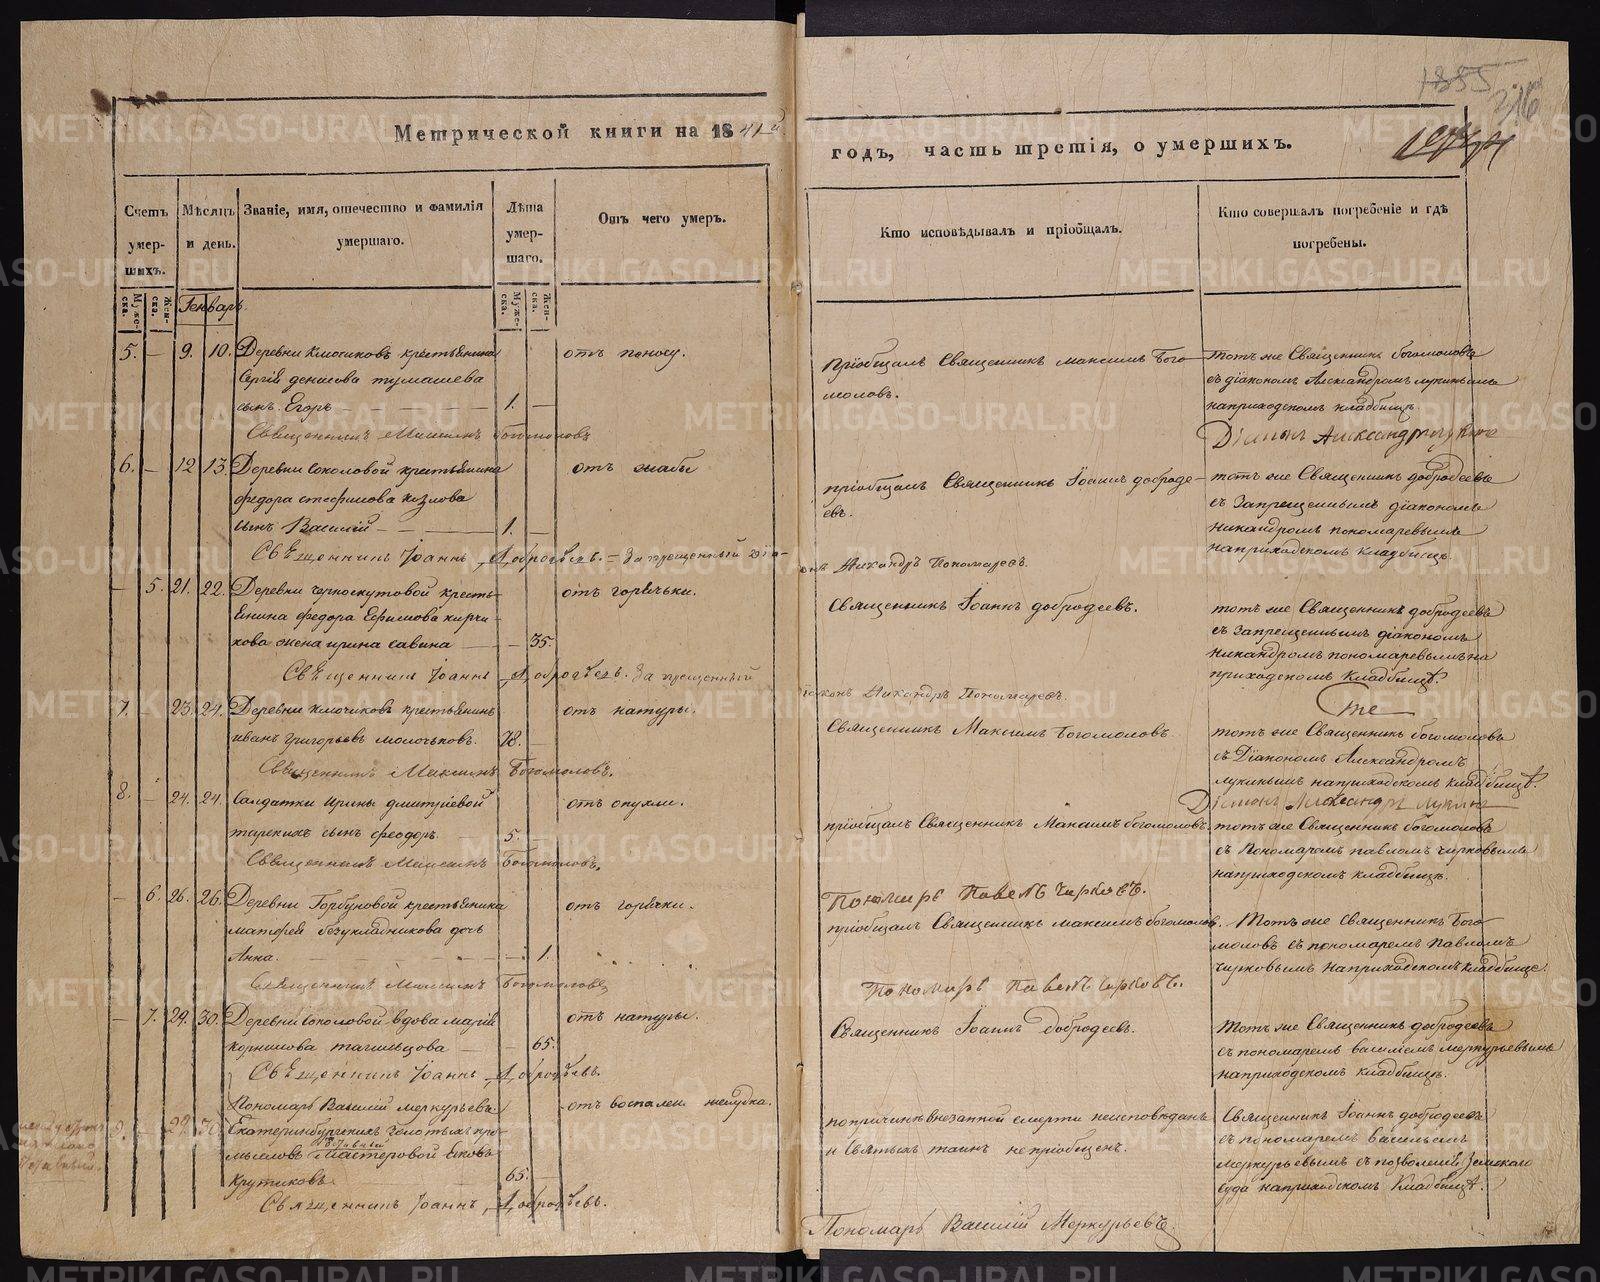 1855
216
Метрической книги на 1841й
годъ, часть третія, о умершихъ.
Счетъ умер-шихъ.
Мѣсяцъ и день.
Званіе, имя, отечество и фамилія умершаго.
Лѣта умер-шаго.
Отъ чего умеръ.
Кто исповѣдывалъ и пріобщалъ.
Кто совершалъ погребеніе и гдѣ погребены.
Муже-ска.
Жен-ска.
Генварь
Муже-ска.
Жен-ска.
5. — 9. 10. Деревни Ключиковъ крестьянина
Сергія денисова тумашева
сынъ Егоръ — 1. —
отъ поносу.
Пріобщалъ Священникъ Максимъ Бого-
моловъ.
тотъ же Священникъ богомоловъ
съ діакономъ Александромъ лукинымъ
наприходскомъ кладбищѣ.
Священникъ Максимъ Богомоловъ
Діаконъ Александръ лукинъ
6. — 12 13. Деревни Соколовой крестьянина
федора стефанова козлова
сынъ Василій — 1. —
отъ жабы
пріобщалъ Священникъ Іоаннъ доброде-
евъ.
тотъ же Священникъ добродеевъ
съ Запрещеннымъ діакономъ
никандромъ пономаревымъ
наприходскомъ кладбищѣ.
Священникъ Іоаннъ Добродѣевъ. = Запрещенный діа-
онъ Никандръ Пономаревъ.
— 5. 21. 22. Деревни черноскутовой кресть-
янина федора Ефимова кирчи-
кова жена ирина савина — 35.
отъ горячьки.
Священникъ Іоаннъ добродеевъ.
тотъ же Священникъ добродеевъ
съ Запрещеннымъ діакономъ
никандромъ пономаревымъ на
приходскомъ кладбищѣ.
Священникъ Іоаннъ Добродѣевъ. Запрещенный
іаконъ Никандръ Пономаревъ.
7. — 23. 24. Деревни ключиковъ крестьянинъ
иванъ григорьевъ молочьковъ. 78. —
отъ натуры.
Священникъ Максимъ Богомоловъ
тотъ же Священникъ богомоловъ
съ Діакономъ Александромъ
лукинымъ наприходскомъ кладбищѣ.
Священникъ Максимъ Богомоловъ.
Діаконъ Александръ лукинъ
8. — 24. 24. Салдатки Ирины дмитріевой
сынъ феодоръ. 5.
отъ опухли.
пріобщалъ Священникъ Максимъ богомоловъ.
тотъ же Священникъ богомоловъ
съ Пономаремъ павломъ чирковымъ
наприходскомъ кладбищѣ.
Священникъ Максимъ Богомоловъ,
Пономарь Павелъ Чирковъ.
— 6. 26. 26. Деревни Горбуновой крестьянина
матфея безукладникова дочь
Анна. — 1.
отъ горячки.
пріобщалъ Священникъ максимъ богомоловъ.
Тотъ же Священникъ Бого-
моловъ съ пономаремъ Павломъ
чирковымъ наприходскомъ кладбище.
Священникъ Максимъ Богомоловъ
Пономарь Павелъ чирковъ.
— 7. 29. 30. Деревни Соколовой вдова марія
корнилова тагильцова — 65.
отъ натуры.
Священникъ Іоаннъ Добродеевъ.
Тотъ же Священникъ добродеевъ
съ пономаремъ василіемъ меркурьевымъ
наприходскомъ кладбищѣ.
Священникъ Іоаннъ Добродѣевъ.
Пономарь Василій меркурьевъ.
9. — 29. 30. Екатеринбургскихъ Золотыхъ про-
мысловъ Мастеровой Яковъ
Крутиковъ — 65.
отъ воспален. желудка.
попричинѣ внезапной смерти неисповѣданъ
и Святыхъ таинъ непріобщенъ.
Священникъ Іоаннъ добродеевъ
съ пономаремъ Васильемъ
Меркурьевымъ съ позволенія Земскаго
Суда наприходскомъ Кладбищѣ.
Священникъ Іоаннъ Добродѣевъ.
Пономарь Василій Меркурьевъ.
METRIKI.GASO-URAL.RU